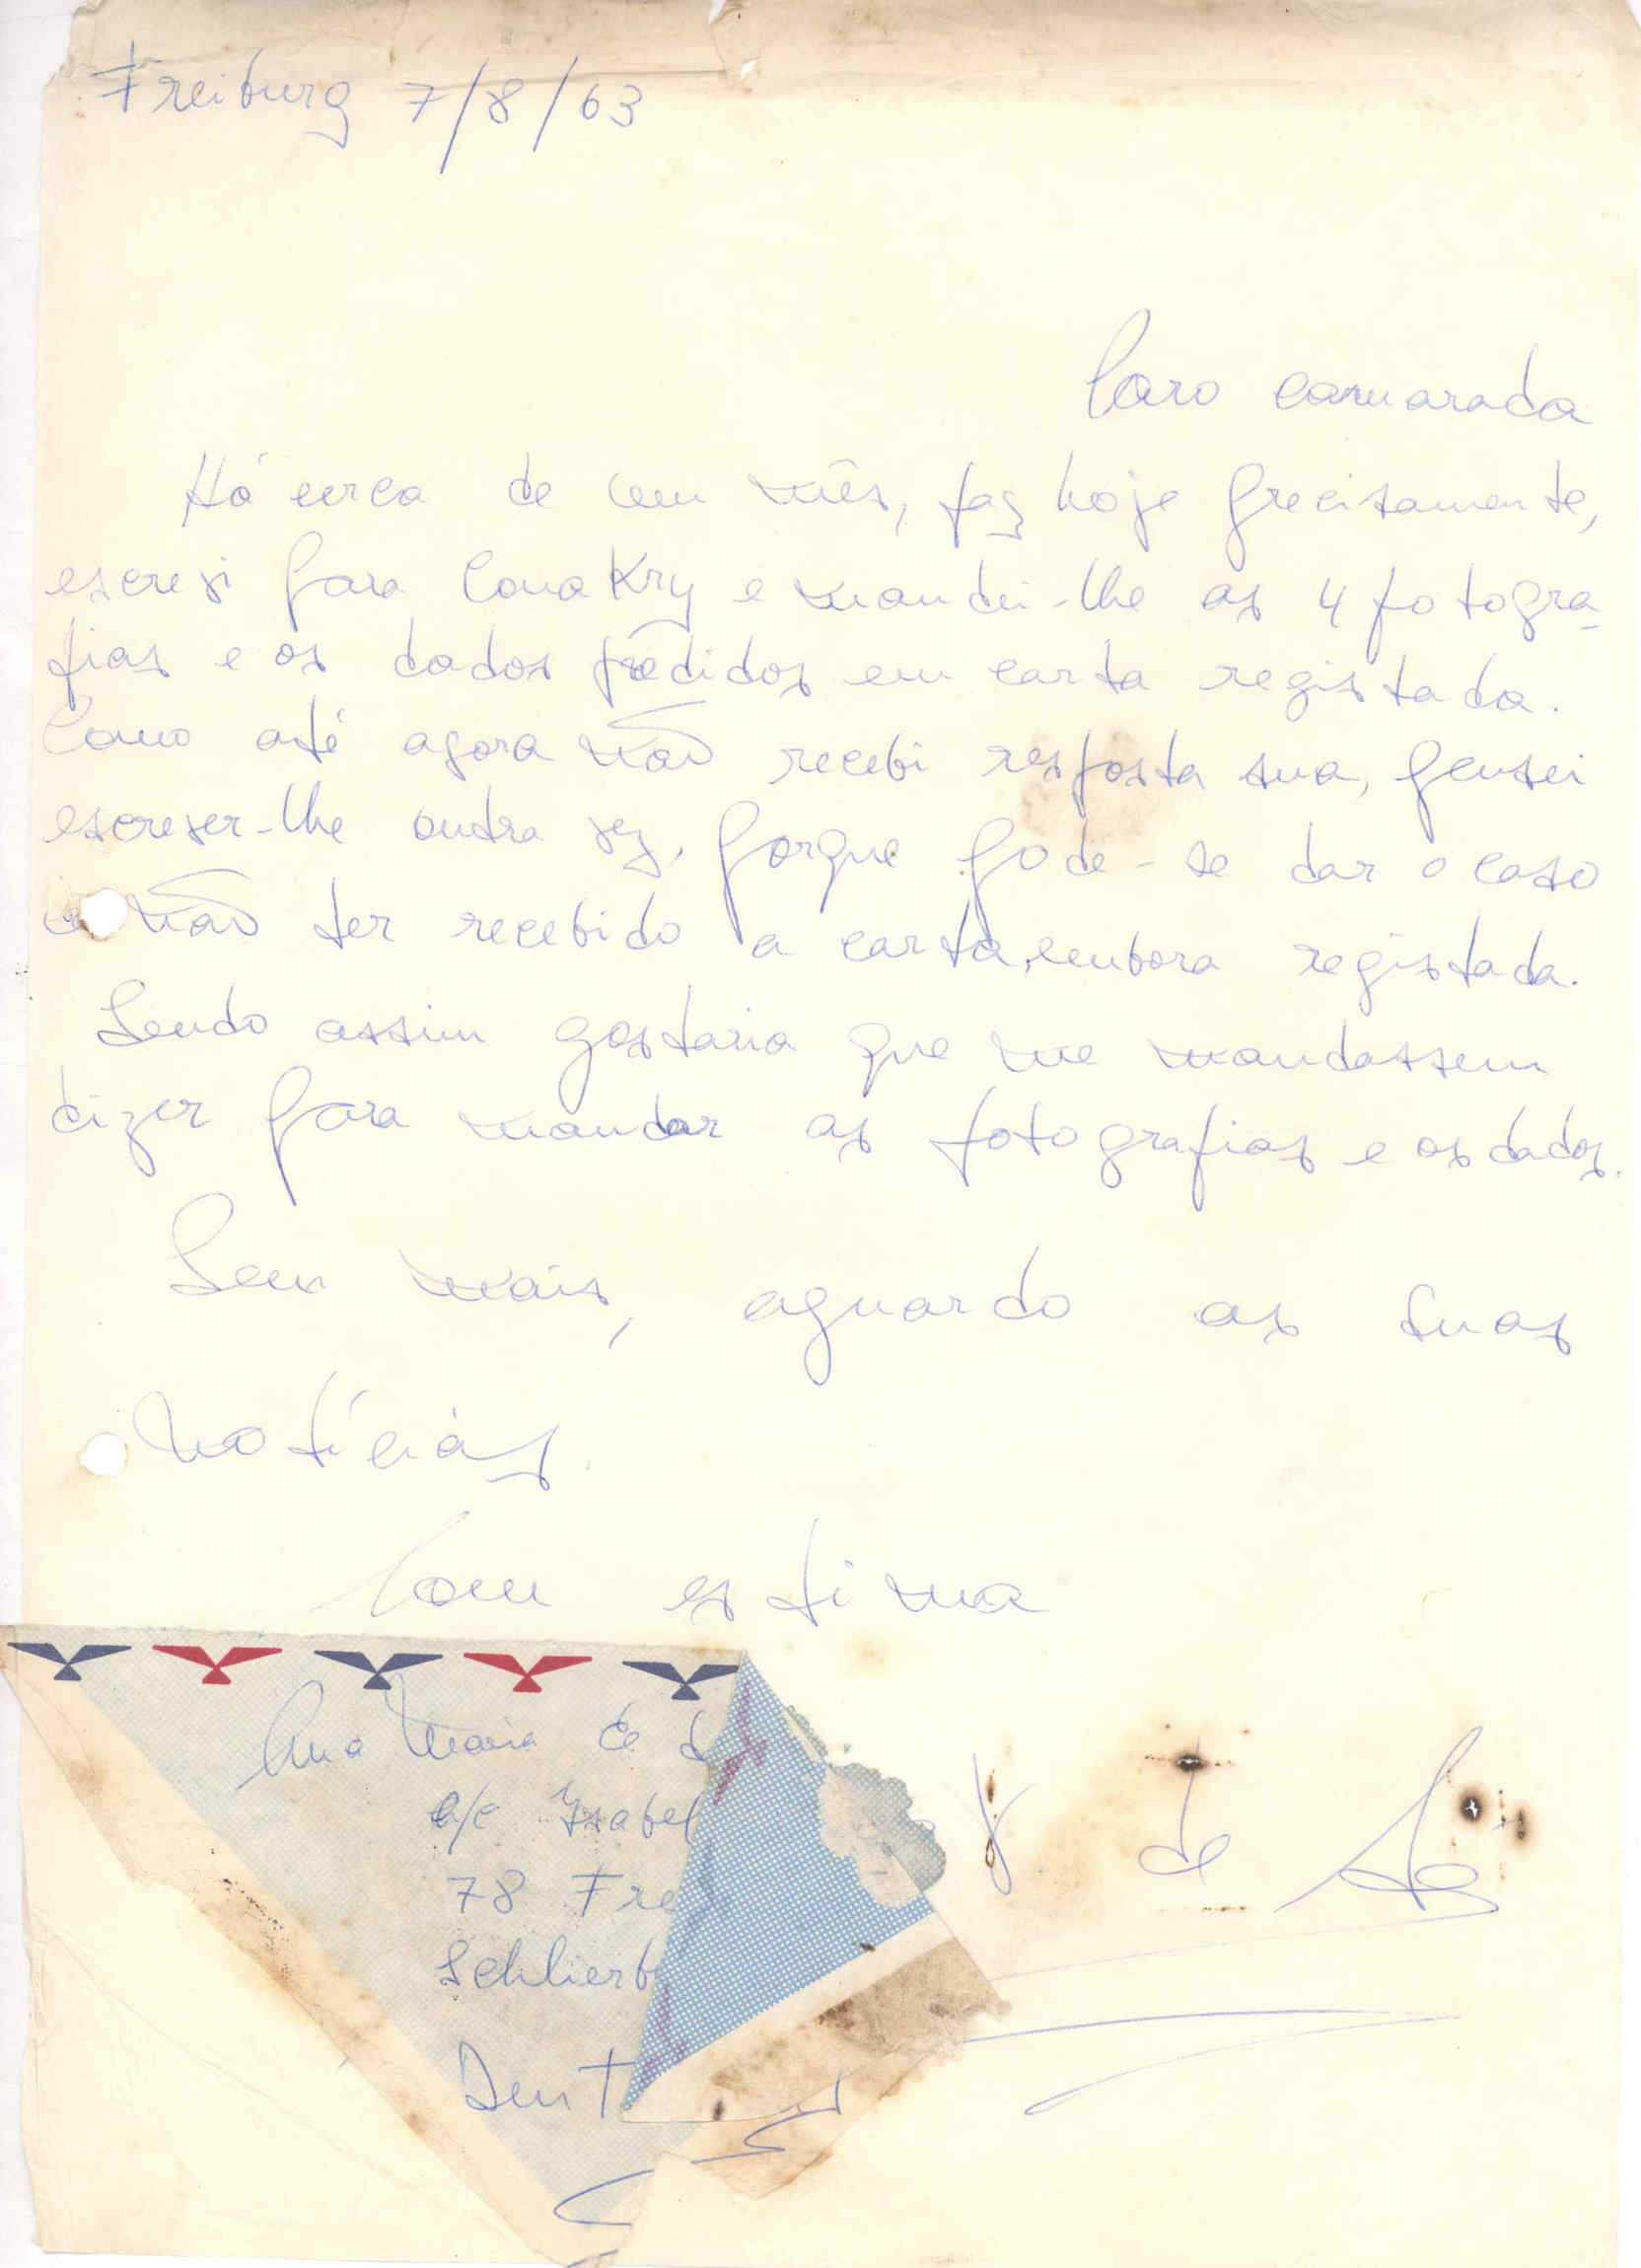 Freiburg 7/8/63
Caro camarada
Há cerca de um mês, faz hoje precisamente,
escrevi para Conakry e mandei-lhe as 4 fotogra-
fias e os dados pedidos em carta registada.
Como até agora não recebi resposta sua, pensei
escrever-lhe outra vez, porque pode-se dar o caso
não ter recebido a carta, embora registada.
Sendo assim gostaria que me mandassem
dizer para mandar as fotografias e os dados.
Sem mais, aguardo as suas
notícias.
Com estima
Ana Maria de
a/c Isabel
78 Frei
Schlierb
Deut
de Sá